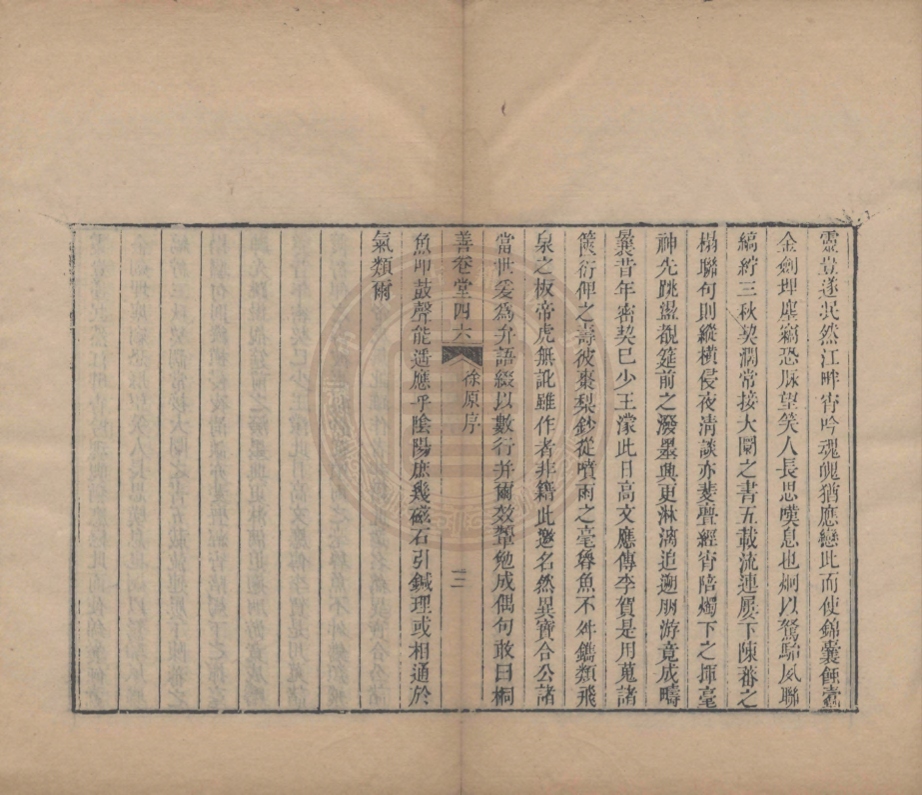 靈豈遂泯然江畔宵吟魂魄猶應戀此而使錦囊蝕蠹
金劍埋塵竊恐脉望笑人長思嘆息也炯以駑駘夙聯
縞紵三秋契濶常接大圜之書五載流連屢下陳蕃之
榻聯句則縱横侵夜清談亦亹亹經宵陪燭下之揮毫
神先跳盪觀筵前之潑墨興更淋漓追遡朋游竟成疇
曩昔年密契已少王濛此日高文應傳李賀是用蒐諸
篋衍俾之壽彼棗梨鈔從噴雨之毫魯魚不舛鐫類飛
泉之板帝虎無訛雖作者非籍此邀名然異寶合公諸
當世爰為弁語綴以數行并爾效顰勉成偶句敢曰桐
善卷堂四六
徐原序
三
魚叩鼓聲能遥應乎陰陽庶幾磁石引鍼理或相通於
氣類爾